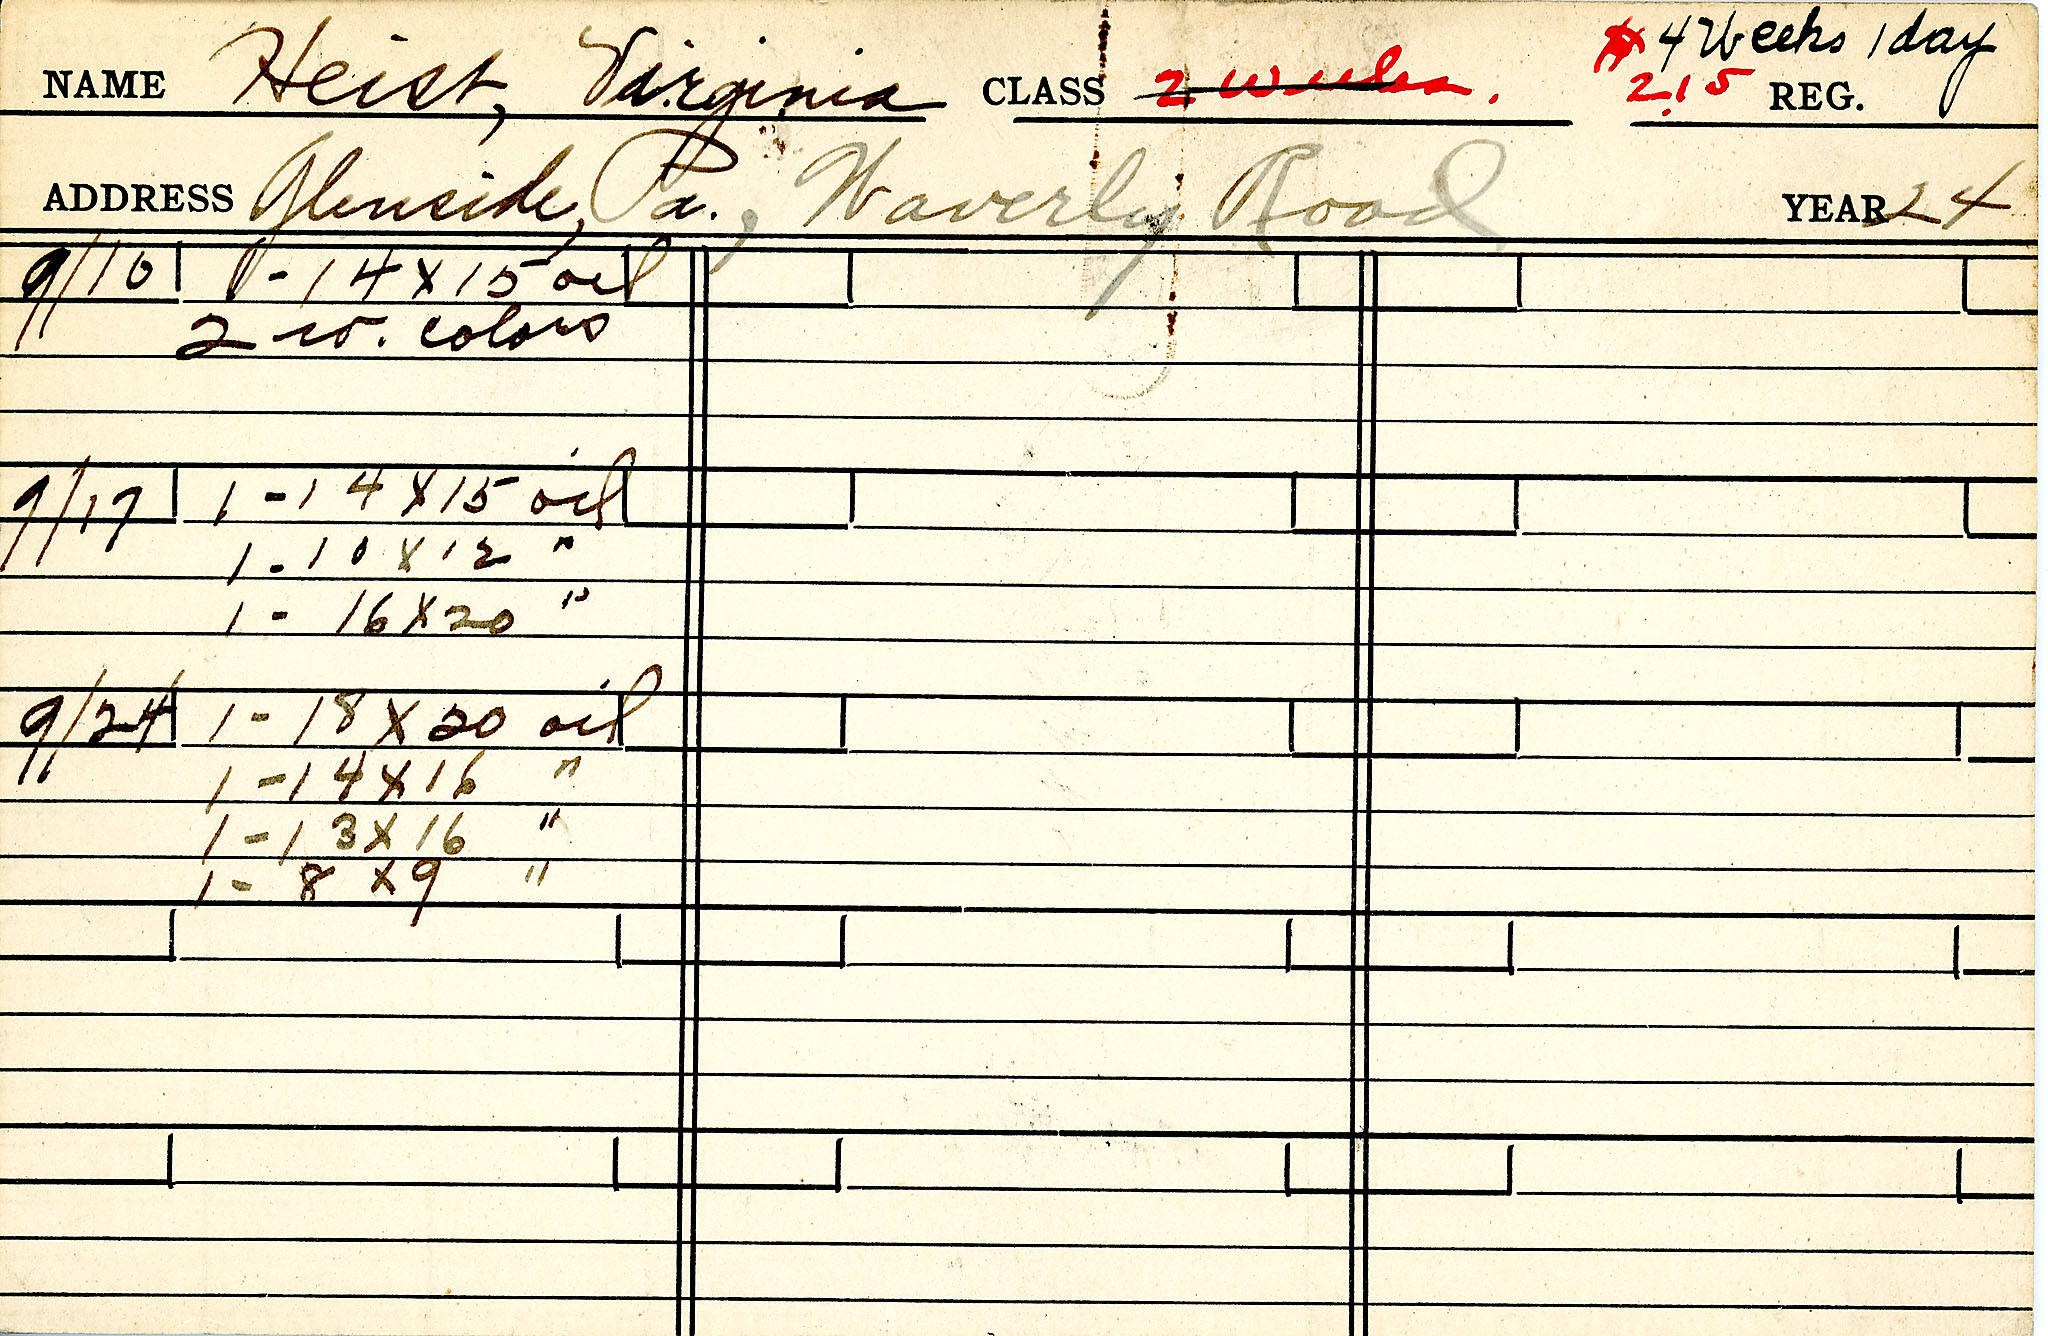 NAME Heist, Virginia CLASS 2 weeks. $ 4 Weeks 1 day
2.15 REG.
ADDRESS Glenside, Pa., Waverly Road YEAR 24
9/10 1 - 14 x 15 oil
2 w. colors
9/17 1 - 14 x 15 oil
1 - 10 x 12 "
1 - 16 x 20 "
9/24 1 - 18 x 20 oil
1 - 14 x 16 "
1 - 13 x 16 "
1 - 8 x 9 "